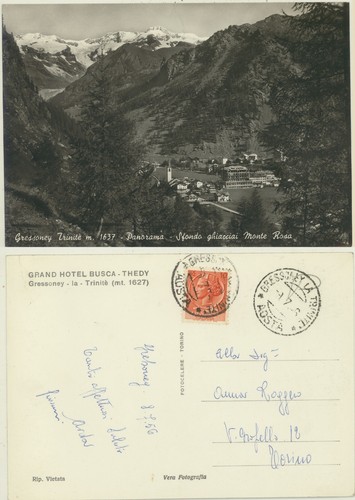 Gressoney Trinité m. 1637 - Panorama - Sfondo ghiacciai Monte Rosa
GRAND HOTEL BUSCA - THEDY
Gressoney - la - Trinité (mt. 1627)
GRESSONEY LA TRINITÉ
AOSTA
FOTOCELERE - TORINO
Gressoney
Tanti affettuosi saluti
Alla Sig.
Anna
V.
12
Torino
Rip. Vietata
Vera Fotografia